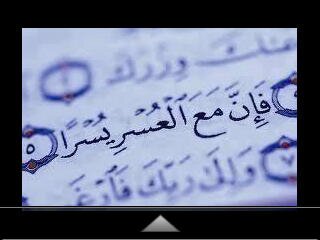 عَنكَ وِزْرَكَ
فَإِنَّ مَعَ ٱلْعُسْرِ يُسْرًا ٥
٧ وَإِلَىٰ رَبِّكَ فَٱرْغَ